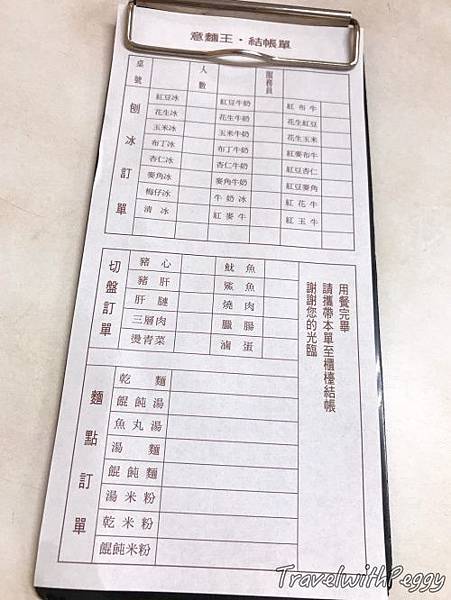 意麵王・結帳單
桌號 人數 服務員
刨冰訂單
紅豆冰 紅豆牛奶 紅布牛
花生冰 花生牛奶 花生紅豆
玉米冰 玉米牛奶 花生玉米
布丁冰 布丁牛奶 紅麥布牛
杏仁冰 杏仁牛奶 紅豆杏仁
麥角冰 麥角牛奶 紅豆麥角
梅仔冰 牛奶冰 紅花牛
清冰 紅麥牛 紅玉牛
切盤訂單
豬心 魷魚
豬肝 鯊魚
肝腱 燒肉
三層肉 臘腸
燙青菜 滷蛋
用餐完畢
請攜帶本單至櫃檯結帳
謝謝您的光臨
麵點訂單
乾麵
餛飩湯
魚丸湯
湯麵
餛飩麵
湯米粉
乾米粉
餛飩米粉
TravelwithPeggy